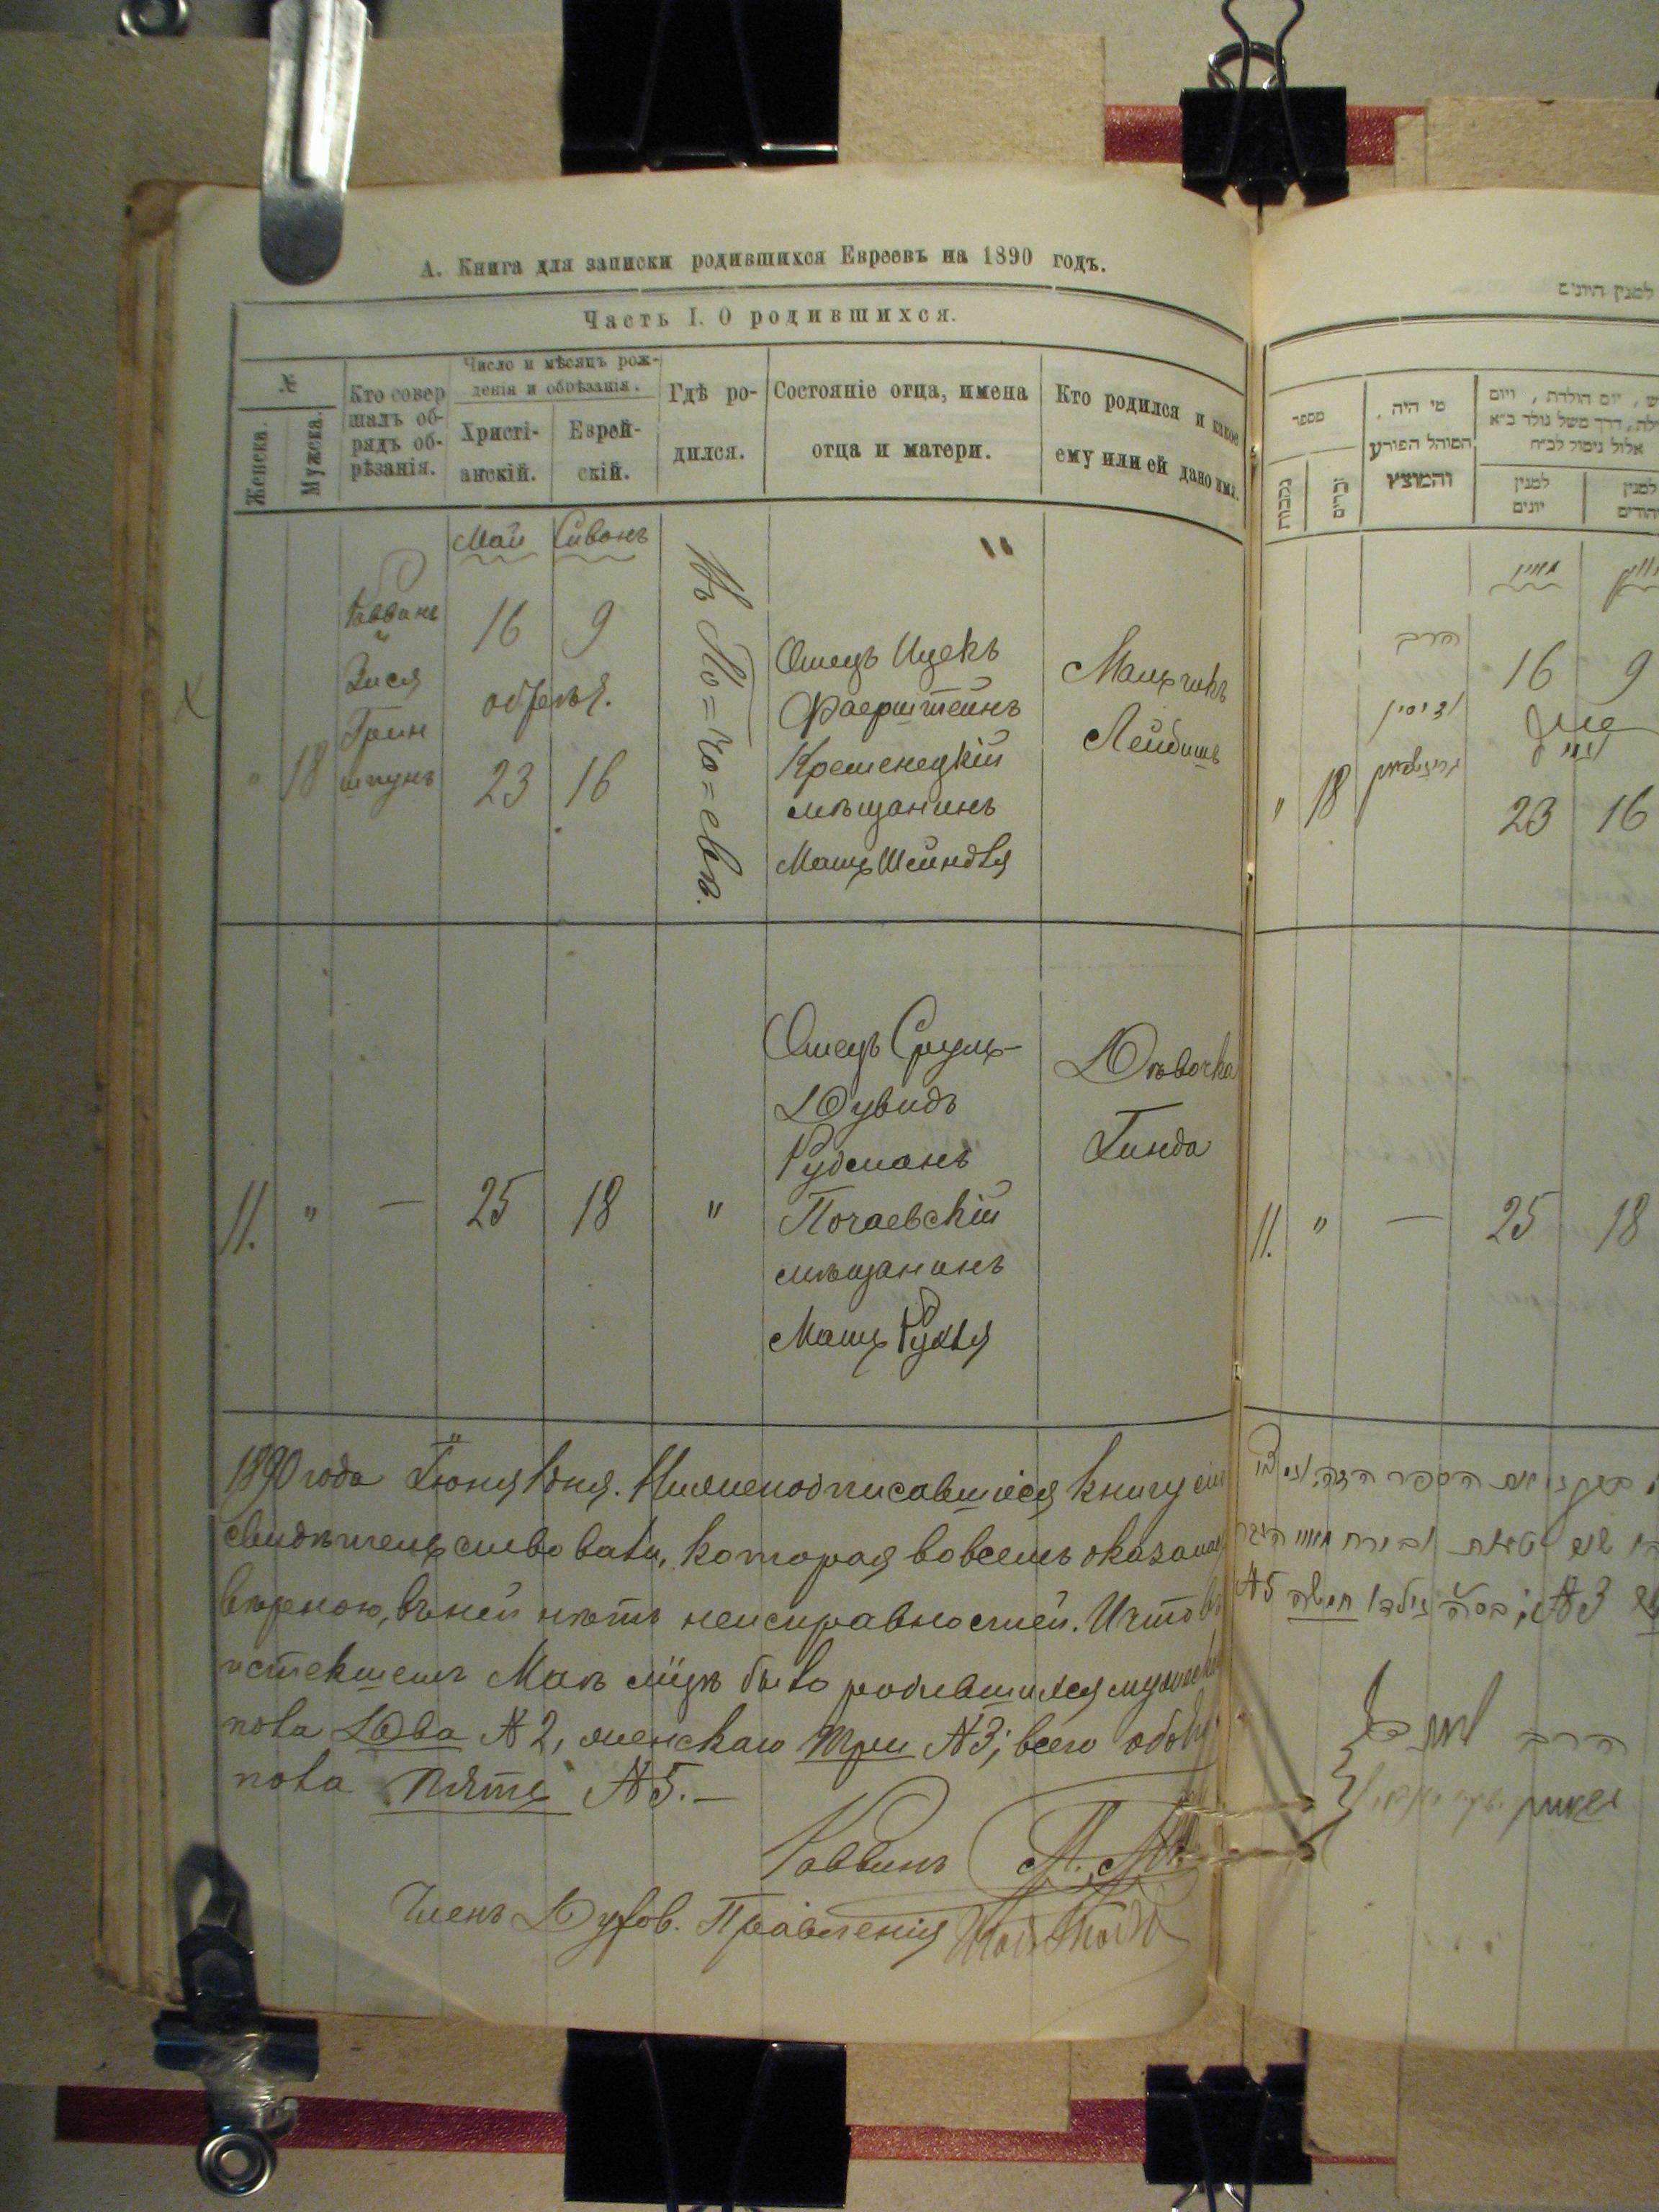 А. Книга для записки родившихся Евреевъ на 1890 годъ.
Часть I. О родившихся.
№
Женска.
Мужска.
Кто совер
шалъ об-
рядъ об-
рѣзанія.
Число и мѣсяцъ рож-
денія и обрѣзанія.
Христі-
анскій.
Еврей-
скій.
Гдѣ ро-
дился.
Состояніе отца, имена
отца и матери.
Кто родился и какое
ему или ей дано имя.
Май Сивонъ
"
Раввинъ
"
Зися
Грин
шпунъ
" 18
16 9
обрезыв.
23 16
Въ По=ча=евѣ.
Отецъ Ицекъ
Фаерштейнъ
Кременецкій
мѣщанинъ
Мать Шейндля
Мальчикъ
Лейбишъ
11. " — 25 18 "
Отецъ Сруль-
Дувидъ
Рудманъ
Почаевскій
мѣщанинъ
Мать Рухля
Дѣвочка
Гинда
1890 года Іюня 1 дня. Нижеподписавшіеся книгу сію
свидѣтельствовали, которая во всемъ оказалась
вѣрною, въ ней нѣтъ неисправностей. И что въ
истекшемъ Маѣ мцѣ было родившихся мужскаго
пола Два № 2, женскаго три № 3; всего обоего
пола пять № 5.—
Раввинъ
Членъ Духов. Правленія
למנין היונים
מספר
נקבות
זכרים
מי היה
המוהל הפורע
והמוצץ
יום הולדת, ויום
דרך משל נולד כ"א
אלול נימול לכ"ח
למנין
יונים
למנין
יהודים
הרב
16 9
" 18
23 16
11. " — 25 18
הספר הזה
№ 3
№ 5
הרב